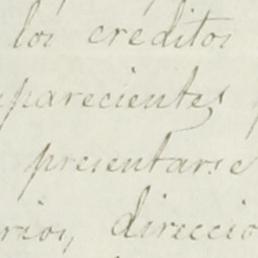 los creditos
parecientes
presentarse
rios, direccio